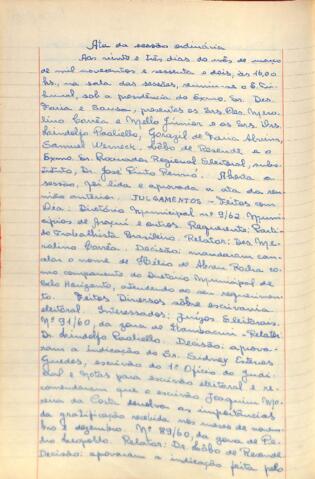 Ata da sessão ordinária
Aos vinte e três dias do mês de março
de mil novecentos e sessenta e dois, às 16,00
hs, na sala das sessões, reuniu-se o E. Tri-
bunal, sob a presidência do Exmo. Sr. Des.
Faria e Sousa, presentes os Srs. Des. Mera-
lino Corrêa e Mello Júnior e os Srs. Drs.
Lindolfo Paoliello, de Faria Alvim,
Samuel Werneck, Lôbo de Resende e o
Exmo. Sr. Procurador Regional Eleitoral, subs-
tituto, Dr. José Pinto Renno. Aberta a
sessão, foi lida e aprovada a ata da reu-
nião anterior. JULGAMENTOS - Feitos com
Dia: Diretório Municipal nº 9/62 Muni-
cípios de e outros. Requerente: Parti-
do Trabalhista Brasileiro. Relator: Des. Me-
ralino Corrêa. Decisão: mandaram can-
celar o nome de Hélio de Abreu Rocha co-
mo componente do Diretório Municipal de
Belo Horizonte, atendendo ao seu requerimen-
to. Feitos Diversos sôbre escrivania
eleitoral. Interessados: Juízos Eleitorais.
Nº 91/60, da zona de Itambacuri - Relator
Dr. Lindolfo Paoliello. Decisão: aprova-
ram a indicação do Sr. Sidney Esteves
Guedes, escrivão do 1º Ofício do Judi-
cial e Notas para escrivão eleitoral e re-
comendaram que o escrivão Joaquim Mo-
reira da Costa devolva as importâncias
da gratificação recebida nos meses de novem-
bro e dezembro. Nº 89/60, da zona de Pe-
dro Leopoldo. Relator: Dr. Lôbo de Resende
Decisão: aprovaram a indicação feita pelo